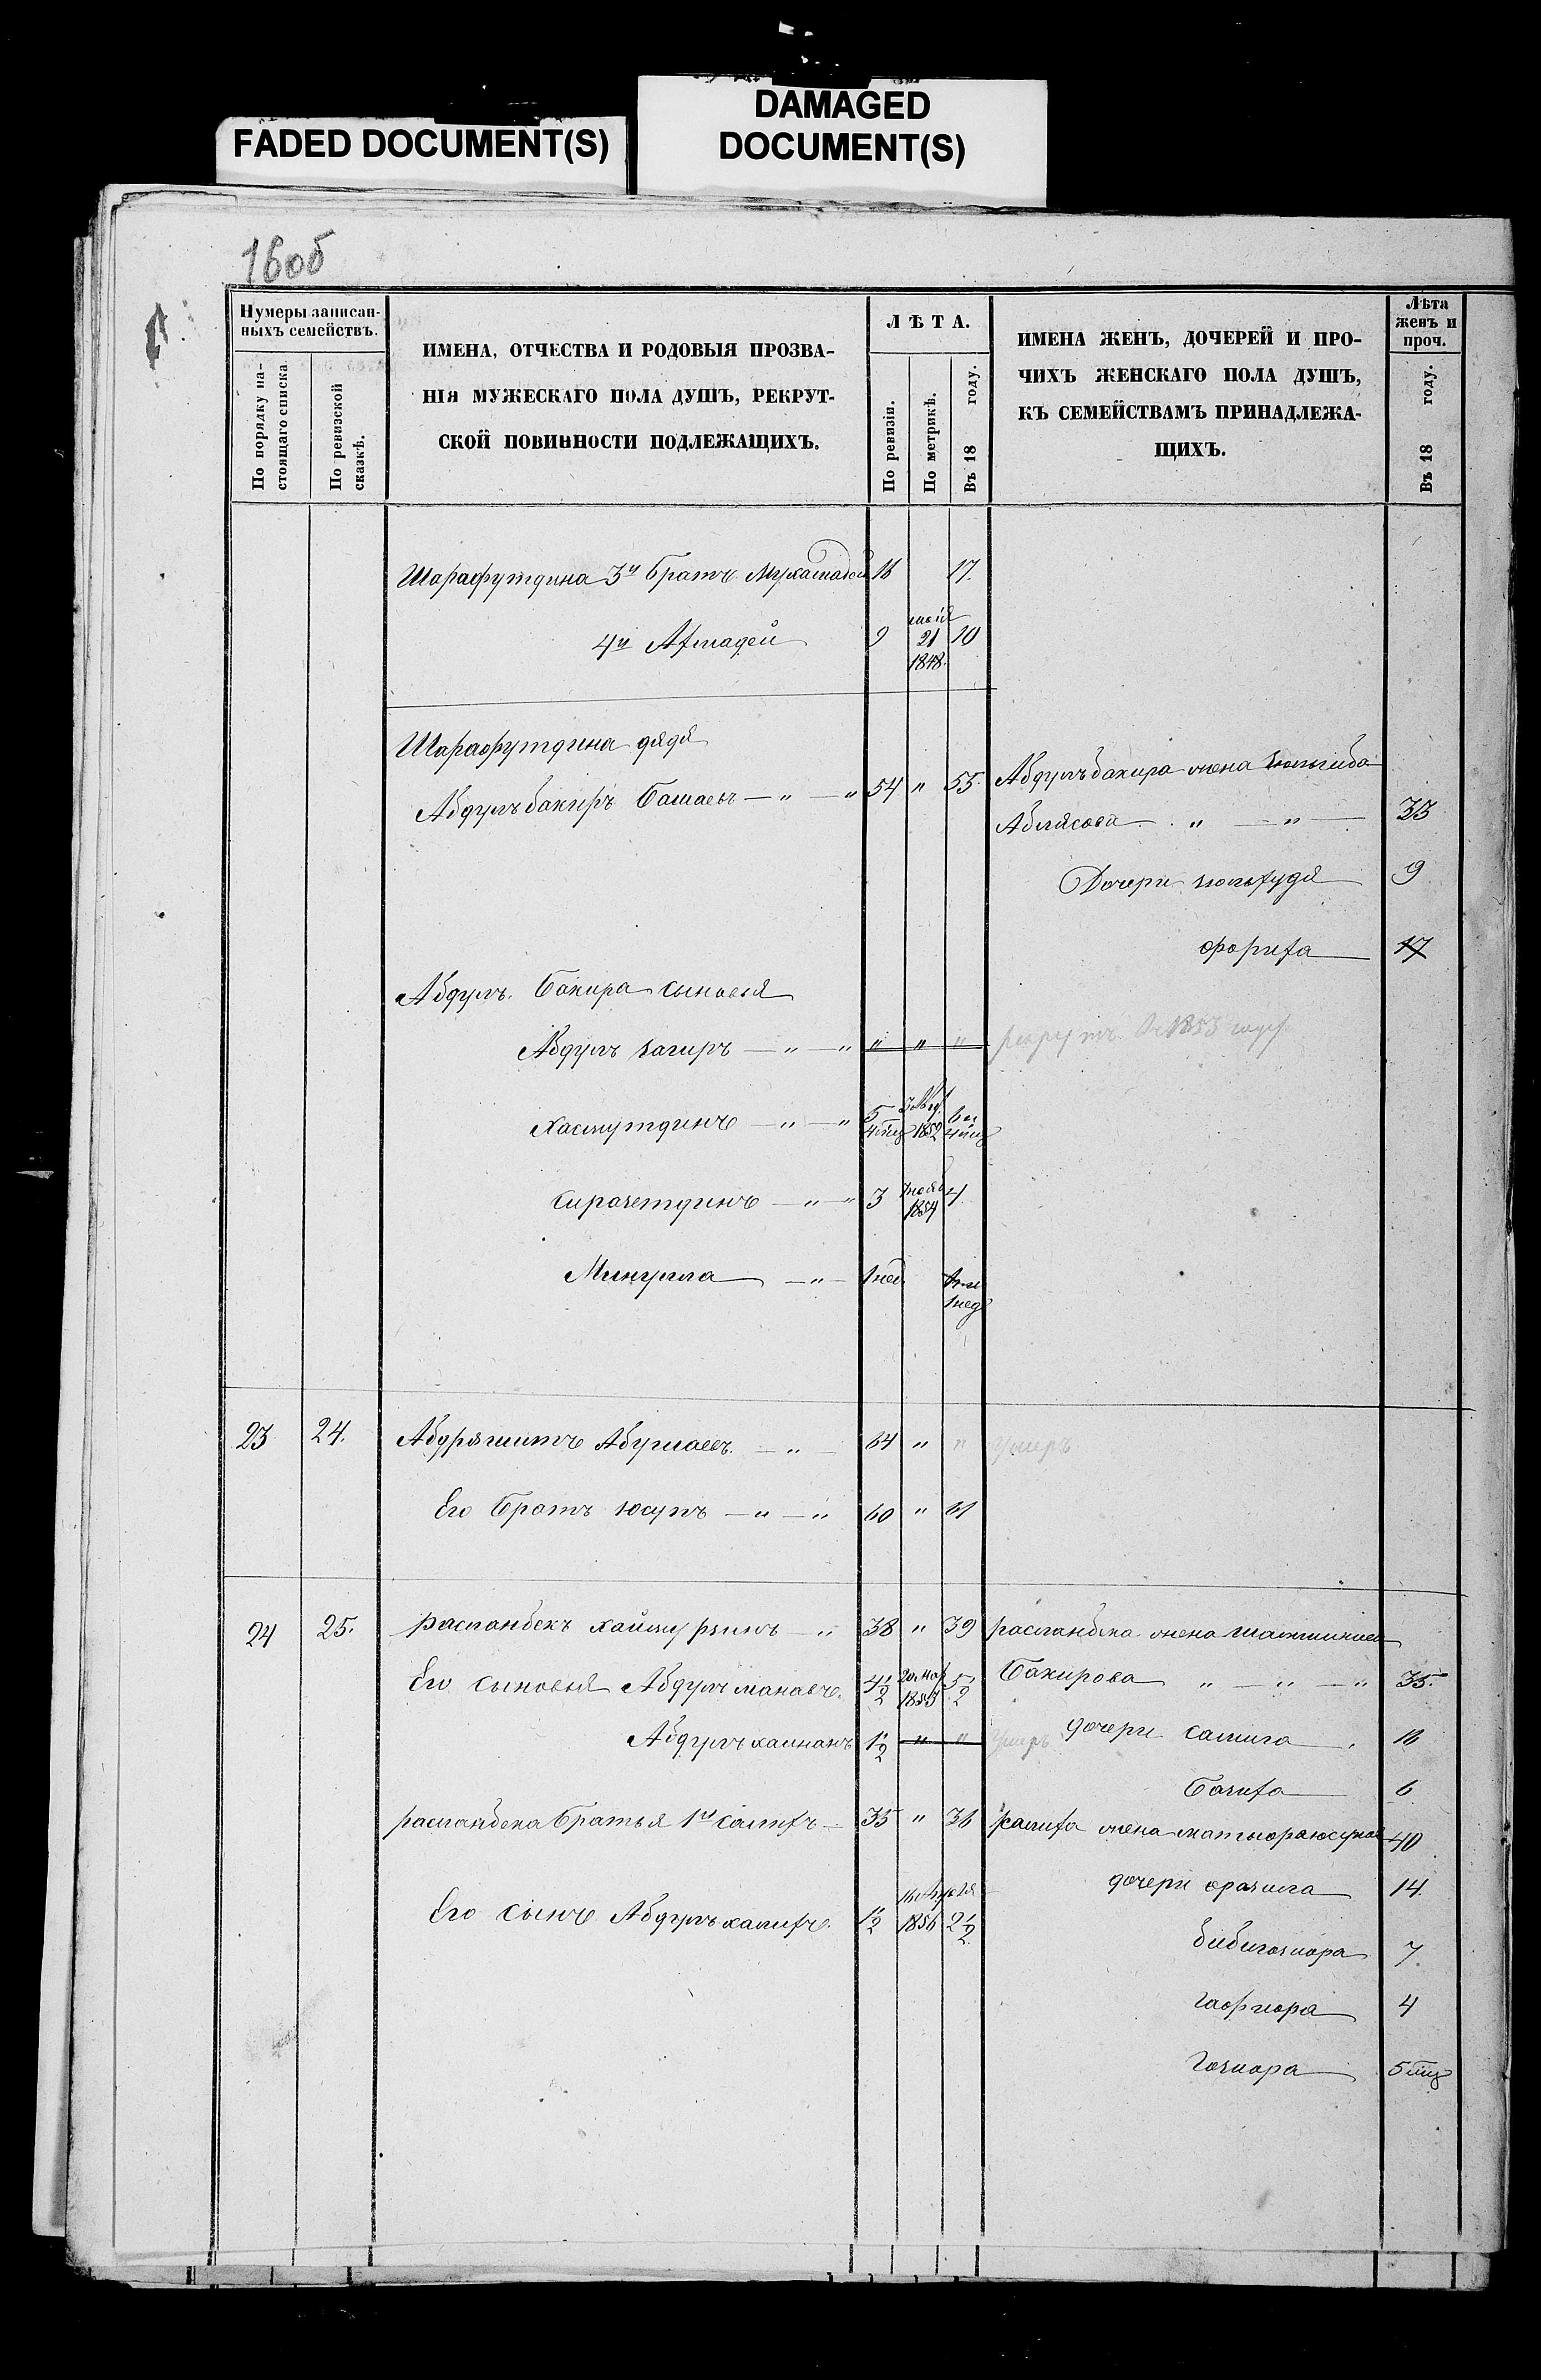 FADED DOCUMENT(S)
DAMAGED
DOCUMENT(S)
16об
Нумеры записан-
ныхъ семействъ.
По порядку на-
стоящаго списка
По ревизской
сказкѣ.
ИМЕНА, ОТЧЕСТВА И РОДОВЫЯ ПРОЗВА-
НІЯ МУЖЕСКАГО ПОЛА ДУШЪ, РЕКРУТ-
СКОЙ ПОВИННОСТИ ПОДЛЕЖАЩИХЪ.
ЛѢТА.
По ревизіи.
По метрикѣ.
Въ 18 году.
ИМЕНА ЖЕНЪ, ДОЧЕРЕЙ И ПРО-
ЧИХЪ ЖЕНСКАГО ПОЛА ДУШЪ,
КЪ СЕМЕЙСТВАМЪ ПРИНАДЛЕЖА-
ЩИХЪ.
Лѣта
женъ и
проч.
Въ 18 году.
Шарафутдина 3й братъ 16 17.
4й Ахмадей 9 мая 21 1848. 10
Шарафутдина дядя
Абдулъ бакиръ Башаевъ — " — " 54 " 55. Абдулъ бакира жена
Аблясова — " — " — 33
Дочери 9
фариха 17
Абдулъ Бакира сыновья
Абдулъ загиръ — " — " " " " рекрутъ въ 1853 году
Хасмутдинъ — " — " 5 4 мц 1852 6 и 4 мц
Сирачетдинъ — " — " 3 1854 4
Минулла — " — 1 нед 1 нед
23 24. Абдряшитъ — " — 64 " " умеръ
Его братъ Юсупъ — " — " 60 " 61
24 25. Расланбекъ — " 38 " 39 Расланбека жена
Его сыновья Абдулъ манавъ. 4½ 1853 5½ Бакирова " — " — " 35.
Абдулъ ханнанъ 1½ " " умеръ дочери Салига 16
Базиха 6
Расланбека братья 1й Салихъ — 35 " 36 Салиха жена 40
дочери фазила 14.
Его сынъ Абдулъ халихъ. 1½ 1856 2½
бибигазюра 7.
4
Газюра 5 мц